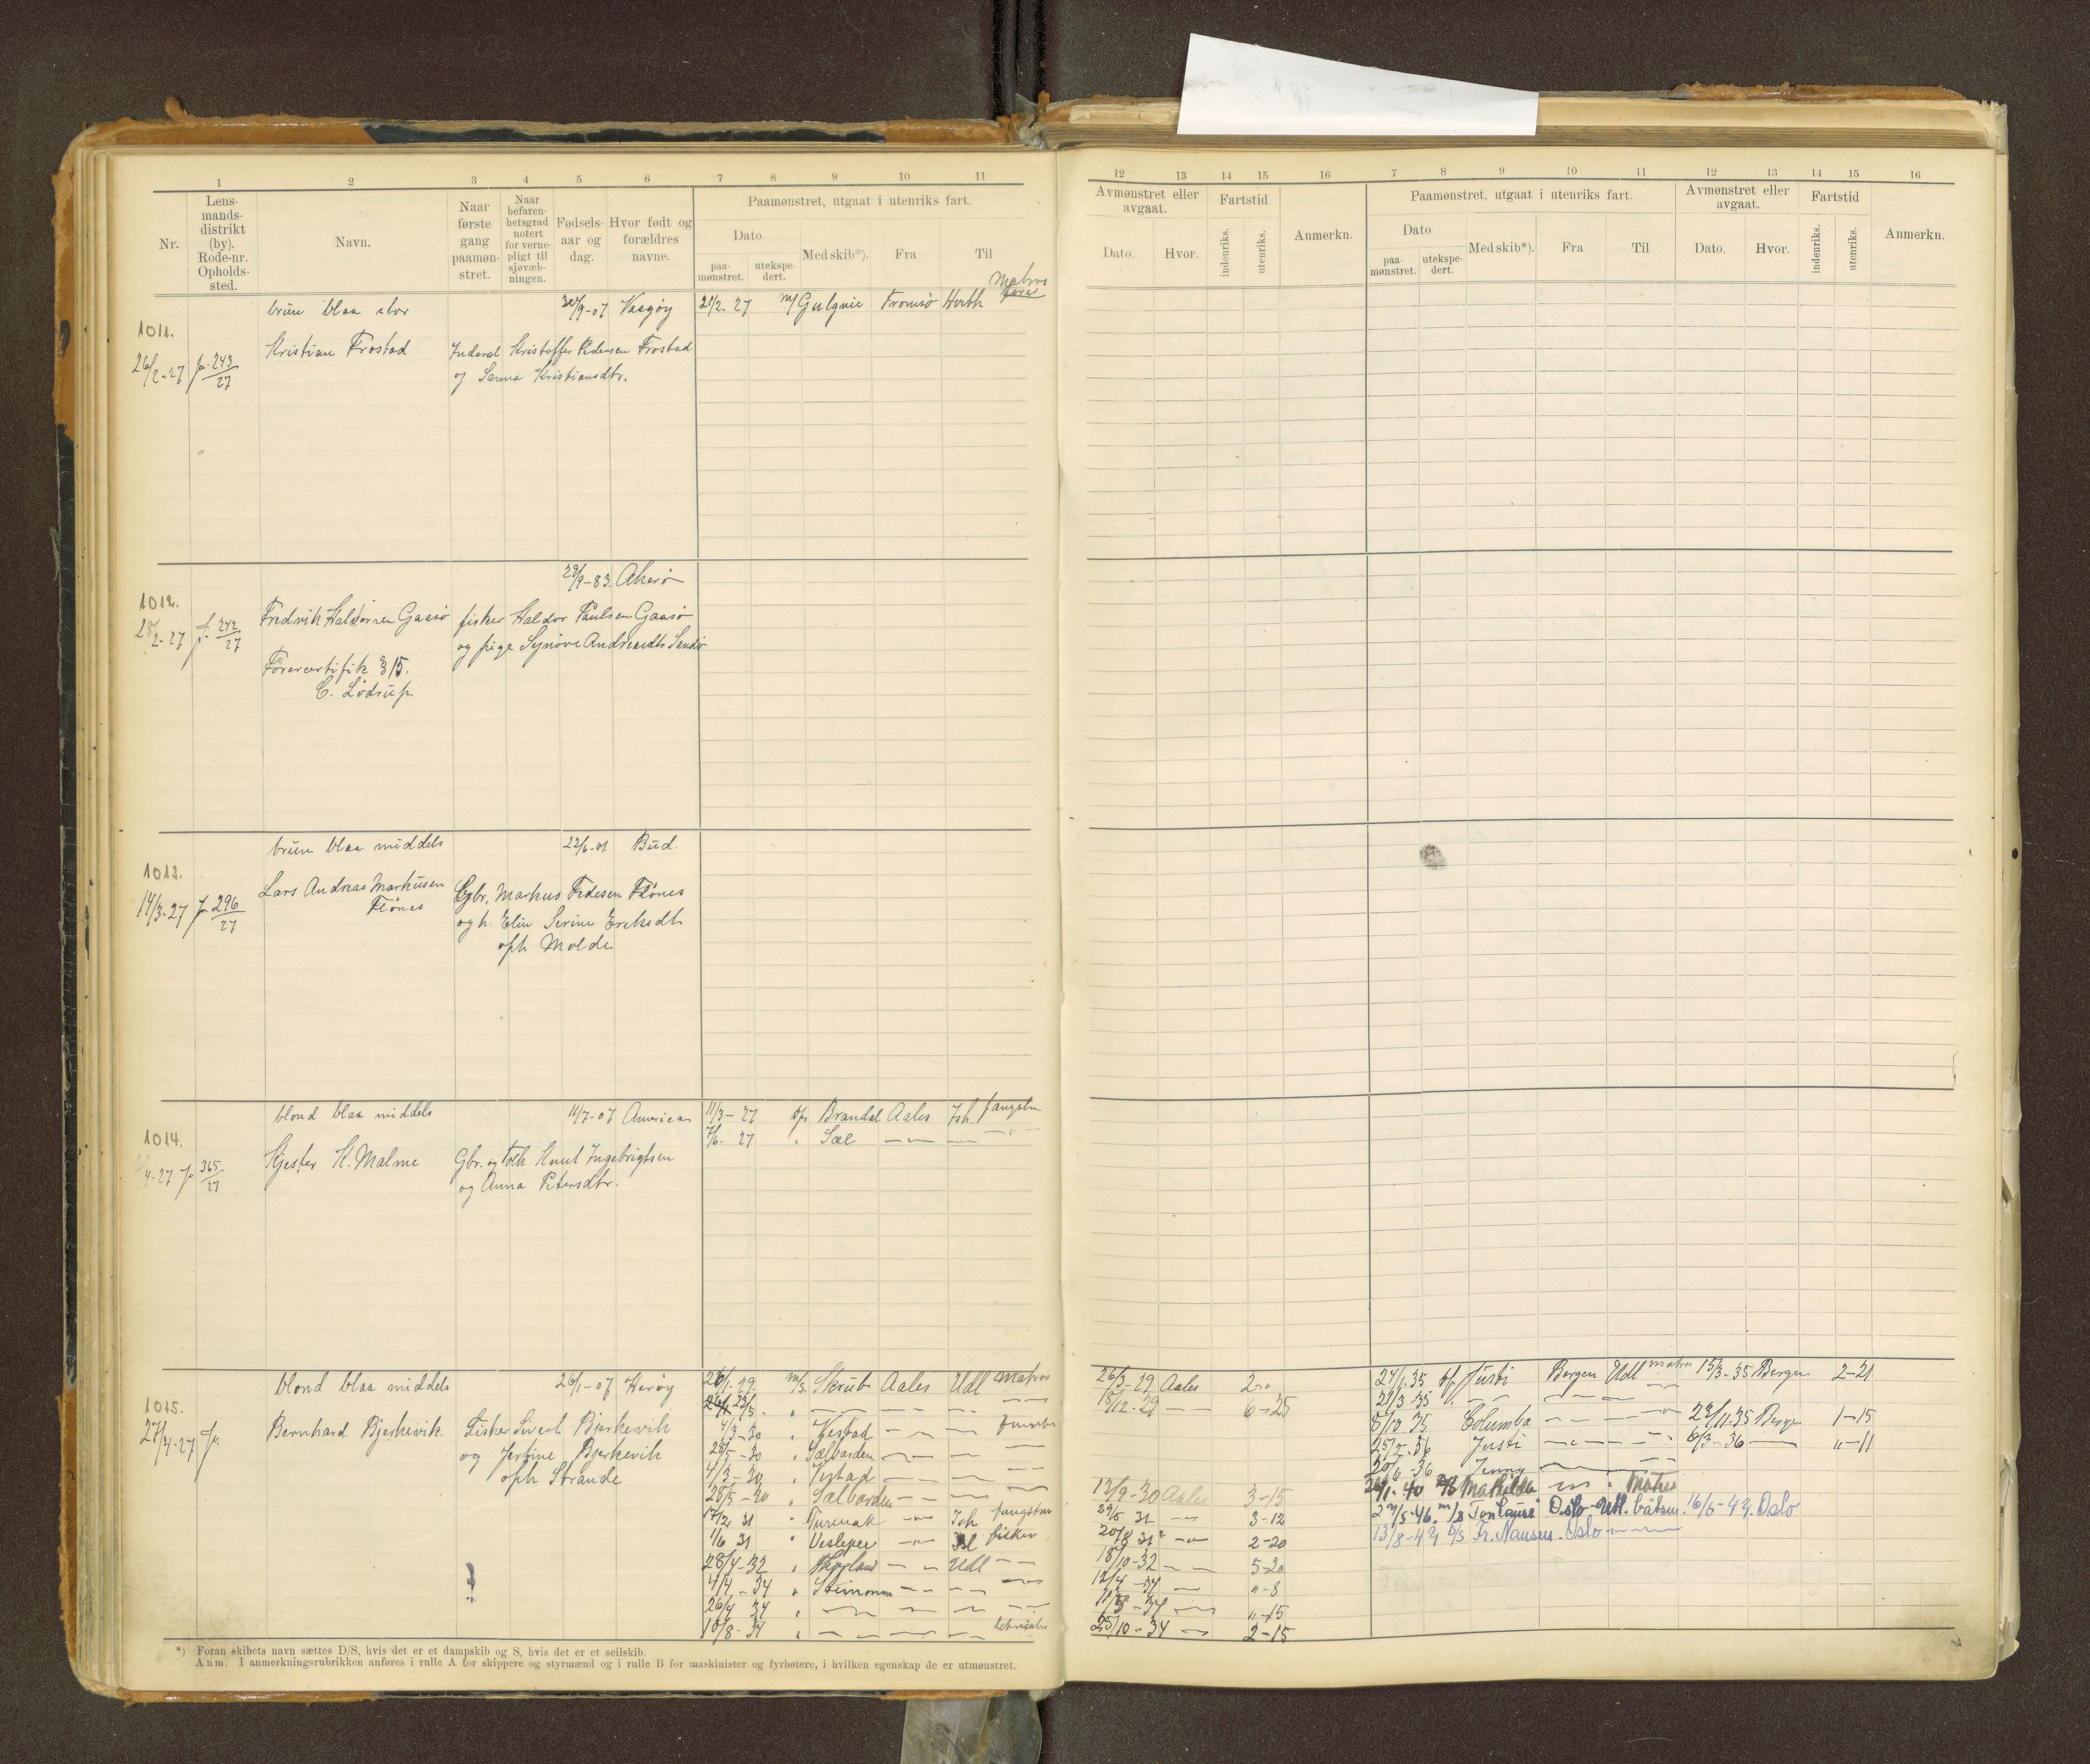 1 2 3 4 5 6 7 8 9 10 11
Nr.
Lens-
mands-
distrikt
(by).
Rode-nr.
Opholds-
sted.
Navn.
Naar
første
gang
paamøn-
stret.
Naar
befaren-
hetsgrad
notert
for verne-
pligt til
sjøvæb-
ningen.
Fødsels-
aar og
dag.
Hvor født og
forældres
navne.
Paamønstret, utgaat i utenriks fart.
Dato
paa-
mønstret.
utekspe-
dert.
Med skib*).
Fra
Til
12 13 14 15 16
Avmønstret eller
avgaat.
Dato.
Hvor.
Fartstid
indenriks.
utenriks.
Anmerkn.
7 8 9 10 11 12 13 14 15 16
Paamønstret, utgaat i utenriks fart.
Dato
paa-
mønstret.
utekspe-
dert.
Med skib*).
Fra
Til
Avmønstret eller
avgaat.
Dato.
Hvor.
Fartstid
indenriks.
utenriks.
Anmerkn.
Matros
brun blaa stor /9-07 Vaagøy 21/2. 27 m/ Tromsø
1011.
Kristian Frostad Inderst Kristoffer Pedersen Frostad
26/2-27 243/27 og Sanna Kristiansdtr.
29/9-83. Akerø
1012.
Fredrik Haldorsen Gaasø fisker Haldor Paulsen Gaasø
28/2-27 242/27 og pige Synøve Andreasdtr Sandø
Førercertifik § 15.
C. Lødrup
brun blaa middels 22/6-01 Bud.
1013.
Lars Andreas Markusen Gbr. Markus Pedersen Flønes
Flønes
14/3-27 296/27 og h. Elen Serine Ereksdtr
oph Molde
blond blaa middels 11/7-07 American 11/3-27 Brandal Aales Ish. fangstm
7/6. 27 " Sæl — — —
1014.
Kjester K. Malme Gbr. og Knut Ingebrigtsen
4-27 365/27 og Anna Petersdtr.
blond blaa middels 26/1-07 Herøy 26/1-29. m/s. Skrub Aales Udl Matros
1015.
Bernhard Bjerkevik Fisker Sivert Bjerkevik
27/4-27 og Jertine Bjerkevik
oph Strande
4/3-30 " Vestad — — —
28/5-30 " Sælbarden — — —
4/3-30 " Vestad — — —
28/5-30 " Salbarden — — —
17/2 31 " Furenak — Ish fangstm
1/6 31 " Vesleper — fisker
28/4-32 " — Udl —
4/4-34 " — — —
26/4 34 " — — —
10/8-34 " — — —
26/3-29 Aales
15/12-29 — 6-25
13/9-30 Aales 3-15
29/5 31 — 3-12
20/8 31 — 2-20
18/10-32 — 5-20
12/4-34 — "-8
11/5-34 — "-15
25/10-34 — 2-15
24/1.35 Justi Bergen Udl matros 15/3-35 Bergen 2-21
21/3-35 — — —
8/10 35 Columba — — 22/11.35 Bergen 1-15
25/2-36 Justi — — 6/3-36 — "-11
20/6-36 Jenny — —
26/1-40 Mathilda — Matros
27/5-46. m/s Ton Laurè Oslo-Utl. båtsm. 16/5-47. Oslo
13/8-47 Fr. Nansen. Oslo —
*) Foran skibets navn sættes D/S, hvis det er et dampskib og S, hvis det er et seilskib.
Anm. I anmerkningsrubrikken anføres i rulle A for skippere og styrmænd og i rulle B for maskinister og fyrbøtere, i hvilken egenskap de er utmønstret.